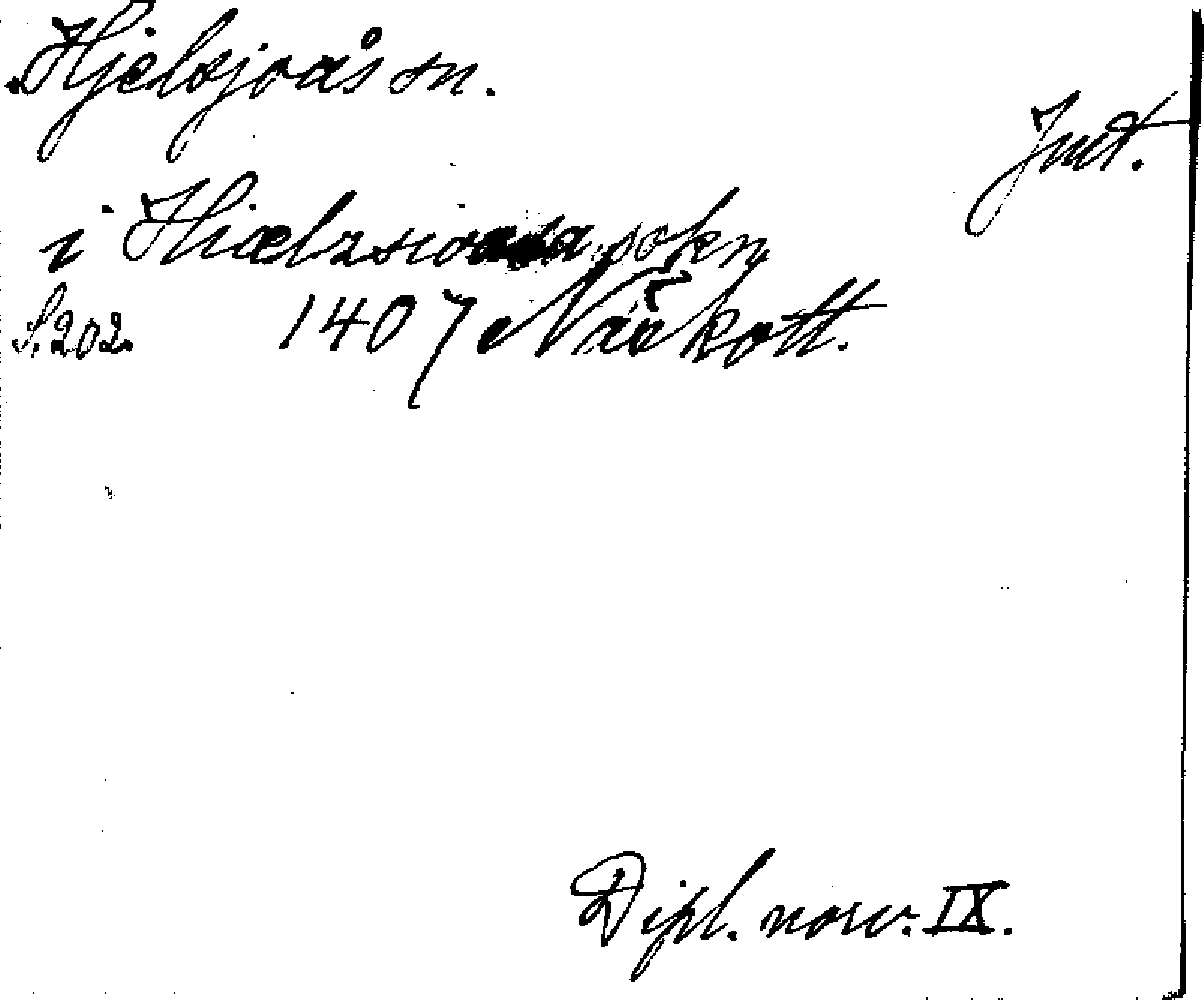 Hjelsjoås sn.
Jmt.
i Hiælzsioasa sokn
S. 202. 1407 Näskott.
Dipl. norv. IX.